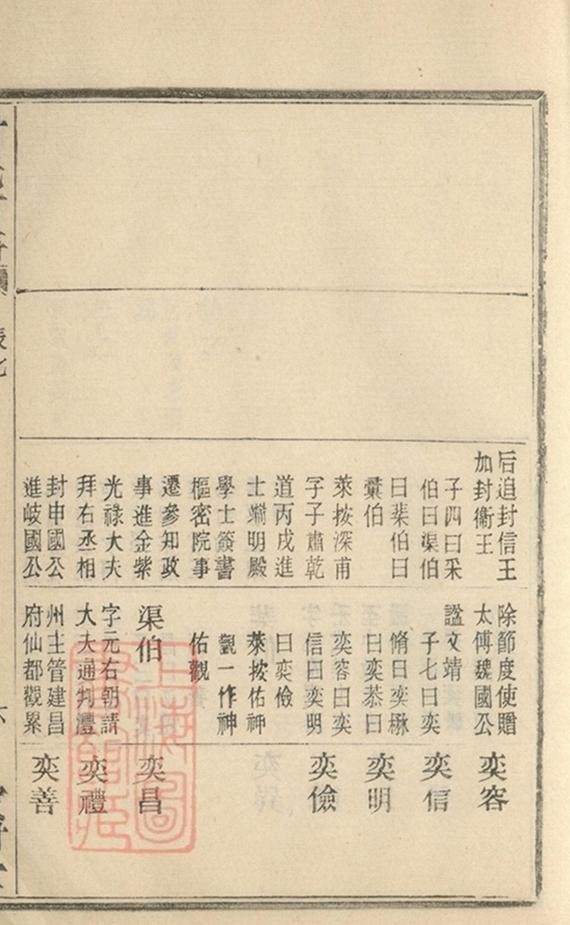 后追封信王
加封衞王
子四曰采
伯曰渠伯
曰棐伯曰
橐伯
萊按深甫
字子肅乾
道丙戌進
士端明殿
學士簽書
樞密院事
遷參知政
事進金紫
光祿大夫
拜右丞相
封申國公
進岐國公
除節度使贈
太傅魏國公
諡文靖
子七曰奕
脩曰奕楙
曰奕恭曰
奕容曰奕
信曰奕明
曰奕儉
萊按佑神
觀一作神
佑觀
渠伯
字元右朝請
大夫通判澧
州主管建昌
府仙都觀累
奕容
奕信
奕明
奕儉
奕昌
奕禮
奕善
上海圖
書館藏